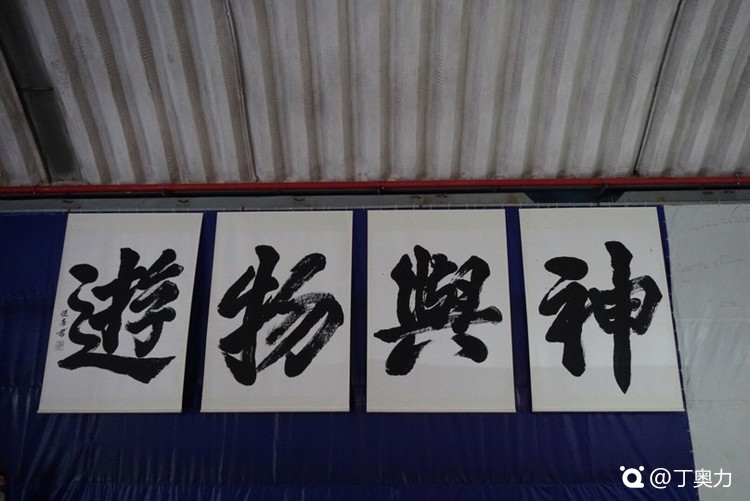 神與物遊
@丁奥力